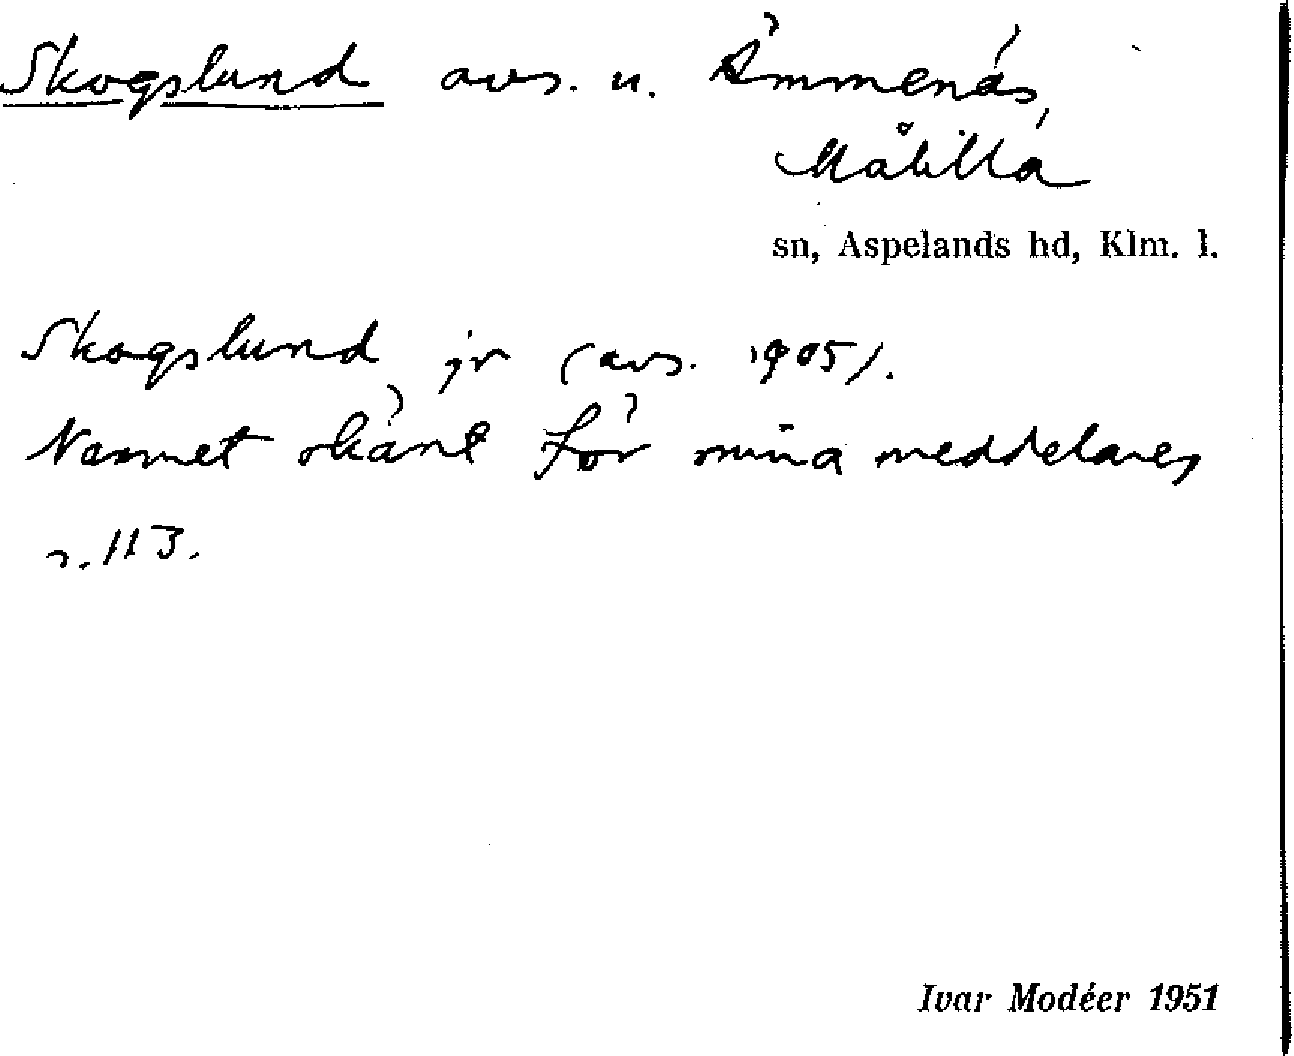 Skogslund avs. u. Ämmenäs,
Målilla
sn, Aspelands hd, Klm. l.
Skogslund jr (avs. 1905).
Namnet okänt för mina meddelare,
s. 113.
Ivar Modéer 1951